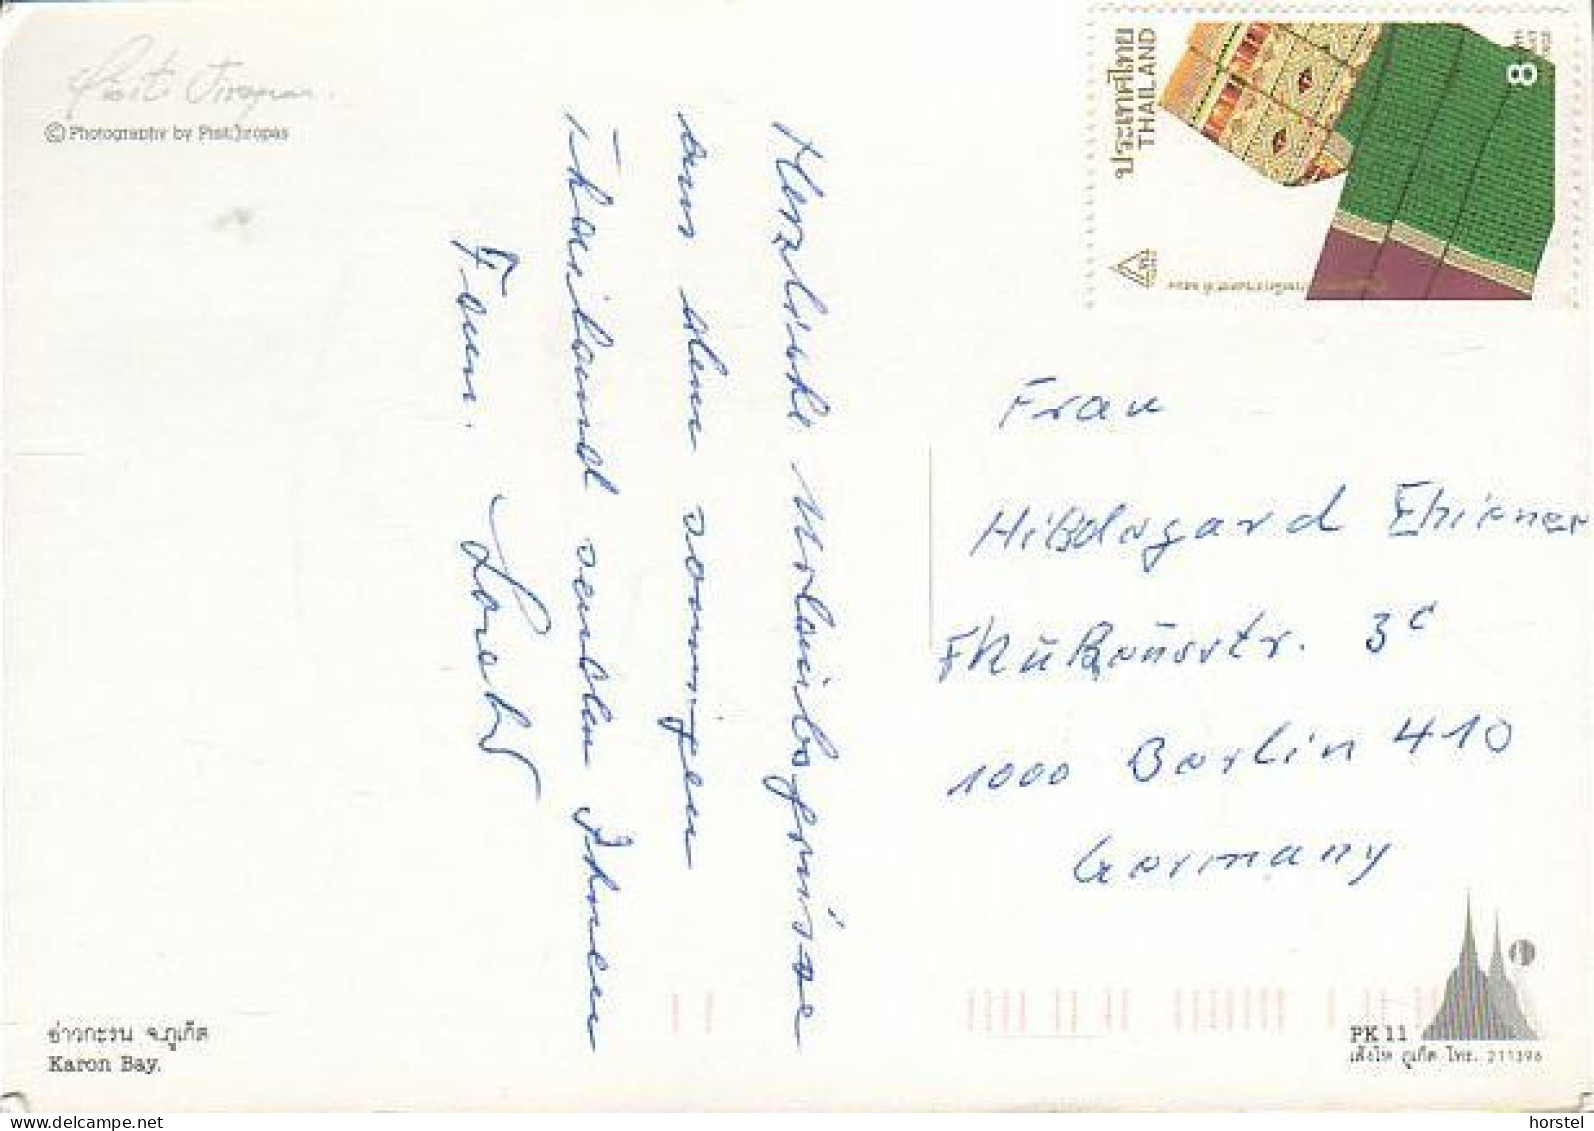 © Photography by Pisit Jiropas
ประเทศไทย
THAILAND
8
Herzliche Urlaubsgrüsse
aus dem sonnigen
Thailand senden Ihnen
Fam.
Frau
Hildegard
3c
1000 Berlin 410
Germany
อ่าวกะรน จ.ภูเก็ต
Karon Bay.
PK 11
เส้งโห ภูเก็ต โทร. 211396
horstel